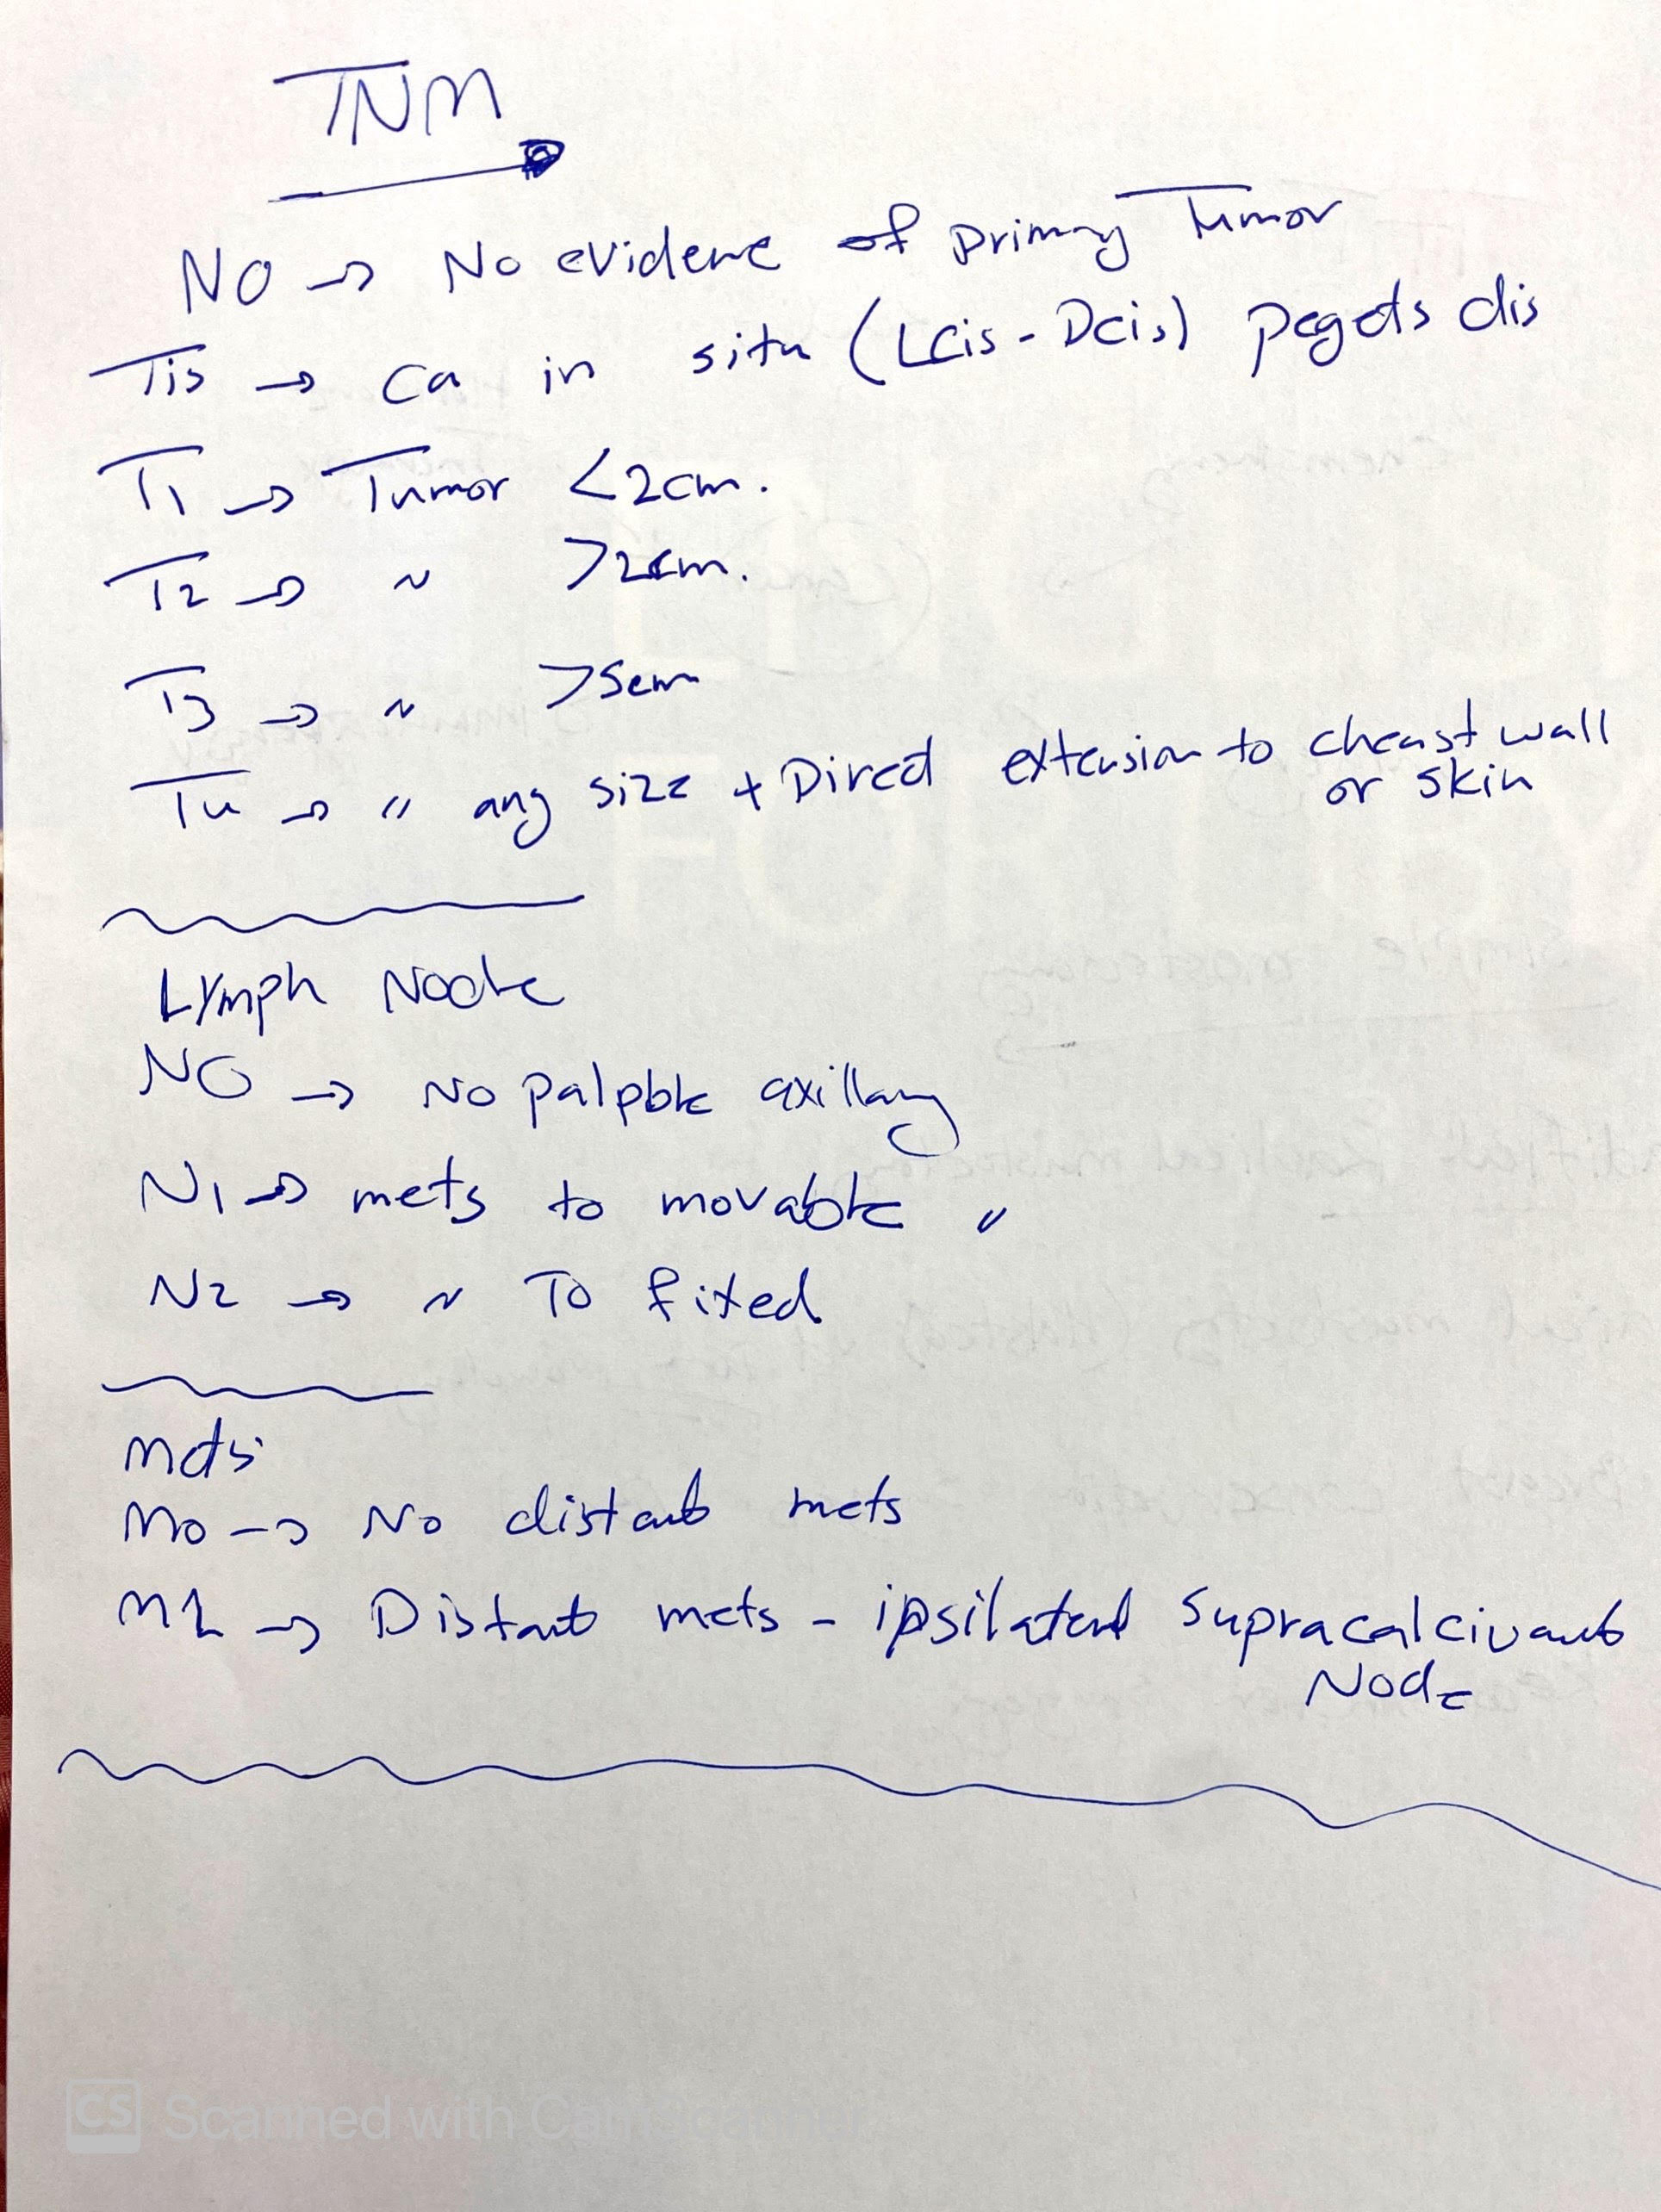 TNM
NO → No evidence of primary Tumor
Tis → Ca in situ (LCis - Dcis) pegets dis
T1 → Tumor <2cm.
T2 → " >2cm.
T3 → " >5cm
T4 → " any size + Direct extension to cheast wall
or skin
Lymph Node
NO → No palpble axillary
N1 → mets to movable "
N2 → " To fixed
Mets
M0 → No distant mets
M1 → Distant mets - ipsilateral supracalcivant
Node
CS Scanned with CamScanner